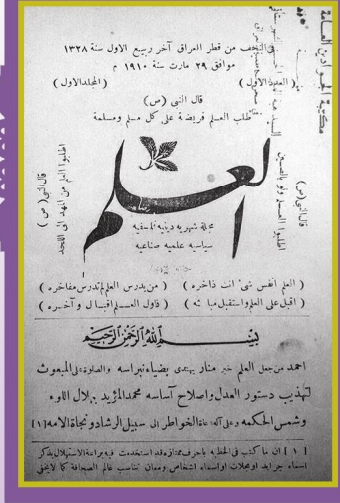 مكتبة الجوادين العامة
النجف من قطر العراق آخر ربيع الاول سنة ١٣٢٨
موافق ٢٩ مارت سنة ١٩١٠ م
( العدد الاول ) ( المجلد الاول )
قال النبي (ص)
طلب العلم فريضة على كل مسلم ومسلمة
قال النبي (ص)
اطلبوا العلم ولو بالصين
قال النبي (ص)
اطلبوا العلم من المهد الى اللحد
العلم
مجلة شهرية دينية فلسفية
سياسية علمية صناعية
( العلم انفس شيء انت ذاخره ) ( من يدرس العلم لم تدرس مفاخره )
( اقبل على العلم واستقبل مباحثه ) ( فاول العلم اقبال وآخره )
بسم الله الرحمن الرحيم
احمد من جعل العلم خير منار يهتدى بضياء نبراسه والصلوة على المبعوث
لتهذيب دستور العدل واصلاح آساسه محمد المؤيد
وشمس الحكمه وعلى آله الخواطر الى سبيل الرشاد ونجاة الامه [١]
[١] ان ما كتب في الخطبة باحرف ممتازة وقد استخدمت فيه براعة الاستهلال بذكر
اسماء جرايد او مجلات او اسماء اشخاص ومعان تناسب عالم الصحافة كما لا يخفى